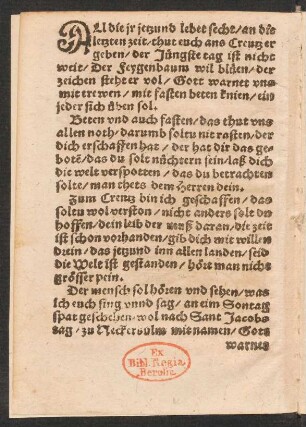 ALl die jr jetzund lebet secht/an die
letzten zeit/thut euch ans Creutz er
geben/der Jüngste tag ist nicht
weit/Der Feygenbaum wil blüen/der
zeichen steht er vol/Gott warnet vns
mit trewen/mit fasten beten knien/ein
jeder sich üben sol.
Beten vnd auch fasten/das thut vns
allen noth/darumb soltu nit rasten/der
dich erschaffen hat/der hat dir das ge-
botē/das du solt nüchtern sein/laß dich
die welt verspotten/das du betrachten
solte/man thets dem Herren dein.
Zum Creutz bin ich geschaffen/das
soltu wol verston/nicht anders solt du
hoffen/dein leib der muß daran/die zeit
ist schon vorhanden/gib dich mit willen
drein/das jetzund inn allen landen/seid
die Welt ist gestanden/hört man nicht
grösser pein.
Der mensch sol hören vnd sehen/was
ich euch sing vnnd sag/an eim Sontag
spat geschehen/wol nach Sant Jacobs
tag/zu Neckersulm mit namen/Gott
warnet
Ex
Bibl. Regia
Berolin.